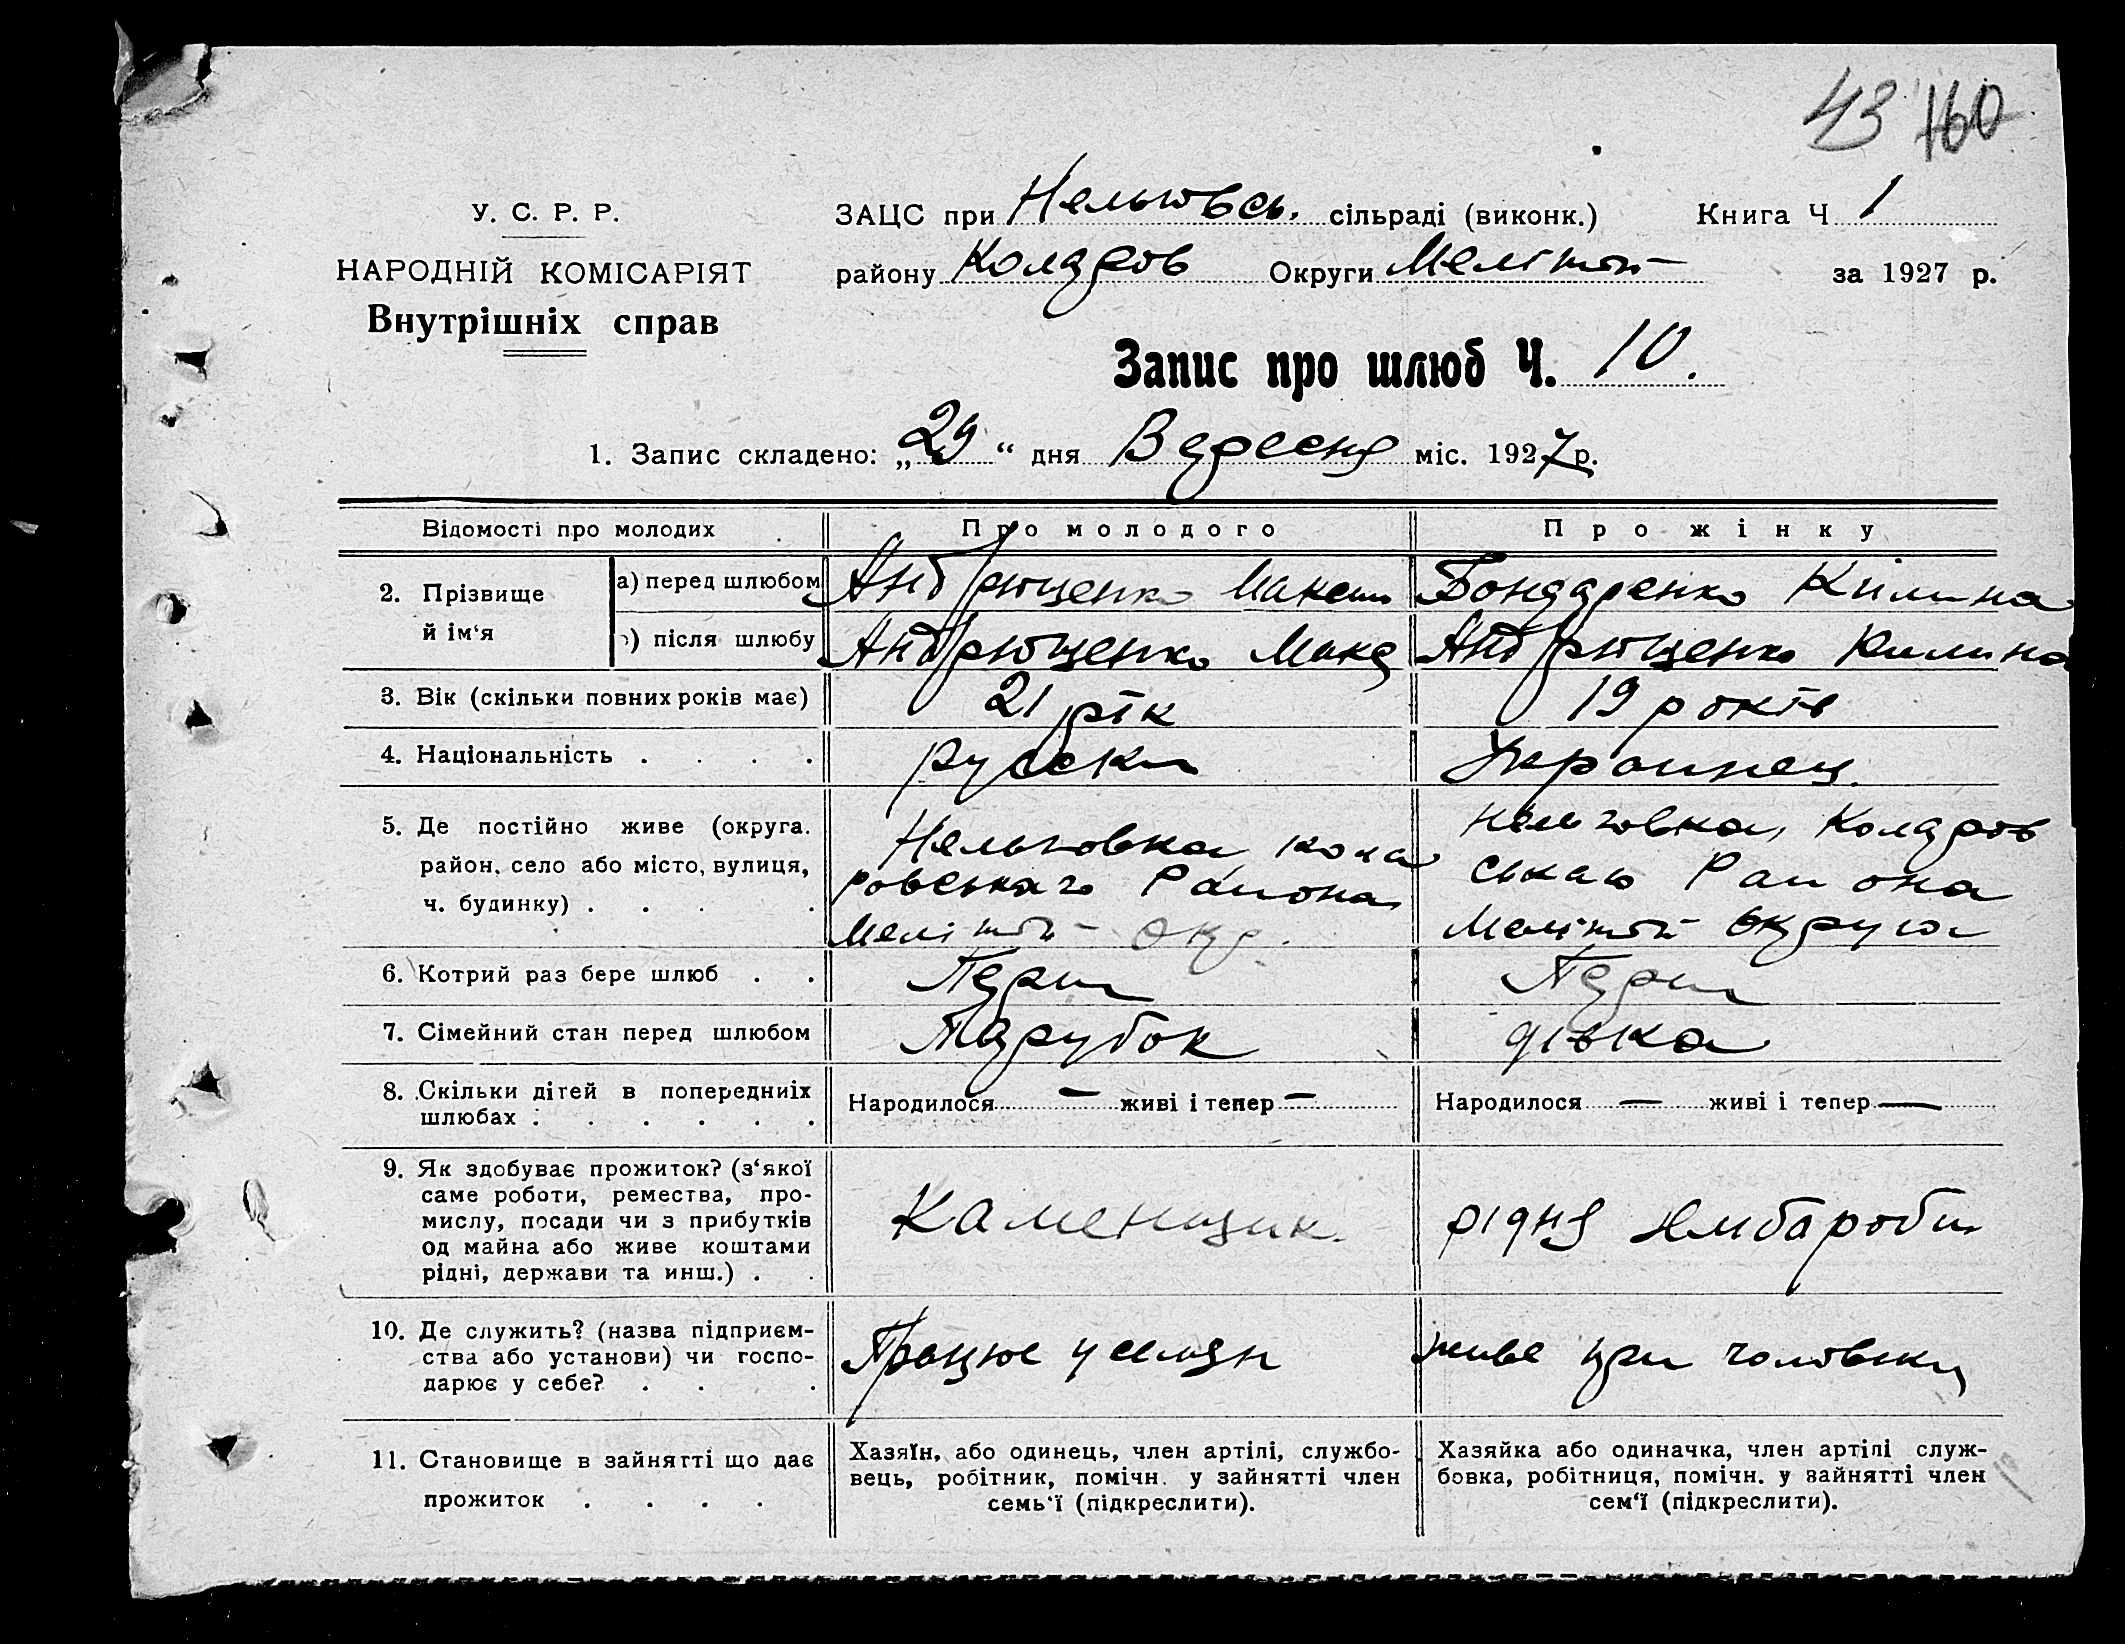 43 160
У. С. Р. Р.
НАРОДНІЙ КОМІСАРІЯТ
Внутрішніх справ
ЗАЦС при Нельговсь. сільраді (виконк.) Книга Ч 1
району Коларов Округи Мелітоп за 1927 р.
Запис про шлюб Ч. 10.
1. Запис складено: „29“ дня Вересня міс. 1927 р.
Відомості про молодих Про молодого Про жінку
2. Прізвище й ім‘я
а) перед шлюбом Андрющенко Максим Бондаренко Килина
) після шлюбу Андрющенко Макс Андрющенко Килина
3. Вік (скільки повних років має) 21 рік 19 років
4. Національність . . . . русски Украинец.
5. Де постійно живе (округа.
район, село або місто, вулиця,
ч. будинку) . . . .
Нельговка кола
ровського Района
Мелітоп- окр.
Нельговка, Колдров
ського Района
Мелітоп округа
6. Котрий раз бере шлюб . . Перш Перш
7. Сімейний стан перед шлюбом Парубок дівка
8. Скільки дітей в попередниіх
шлюбах : . . . . .
Народилося — живі і тепер — Народилося — живі і тепер —
9. Як здобуває прожиток? (з‘якої
саме роботи, ремества, про-
мислу, посади чи з прибутків
од майна або живе коштами
рідні, держави та инш.) . .
Каменщик. рідня
10. Де служить? (назва підприєм-
ства або установи) чи госпо-
дарює у себе? . . .
Працює у семьи живе при чоловіку
11. Становище в зайнятті що дає
прожиток . . . .
Хазяїн, або одинець, член артілі, службо-
вець, робітник, помічн. у зайнятті член
семь‘ї (підкреслити).
Хазяйка або одиначка, член артілі служ-
бовка, робітниця, помічн. у зайнятті член
сем‘ї (підкреслити).